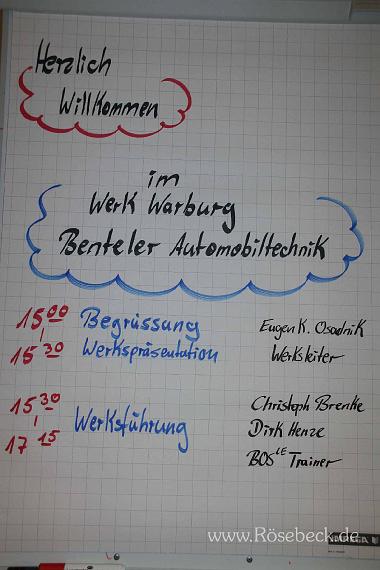 Herzlich
Willkommen
im
Werk Warburg
Benteler Automobiltechnik
15 00 Begrüssung Eugen K. Osadnik
15 30 Werkspräsentation Werksleiter
15 30 Christoph Brenke
Werksführung Dirk Henze
17 15 BOS LE Trainer
www.Rösebeck.de